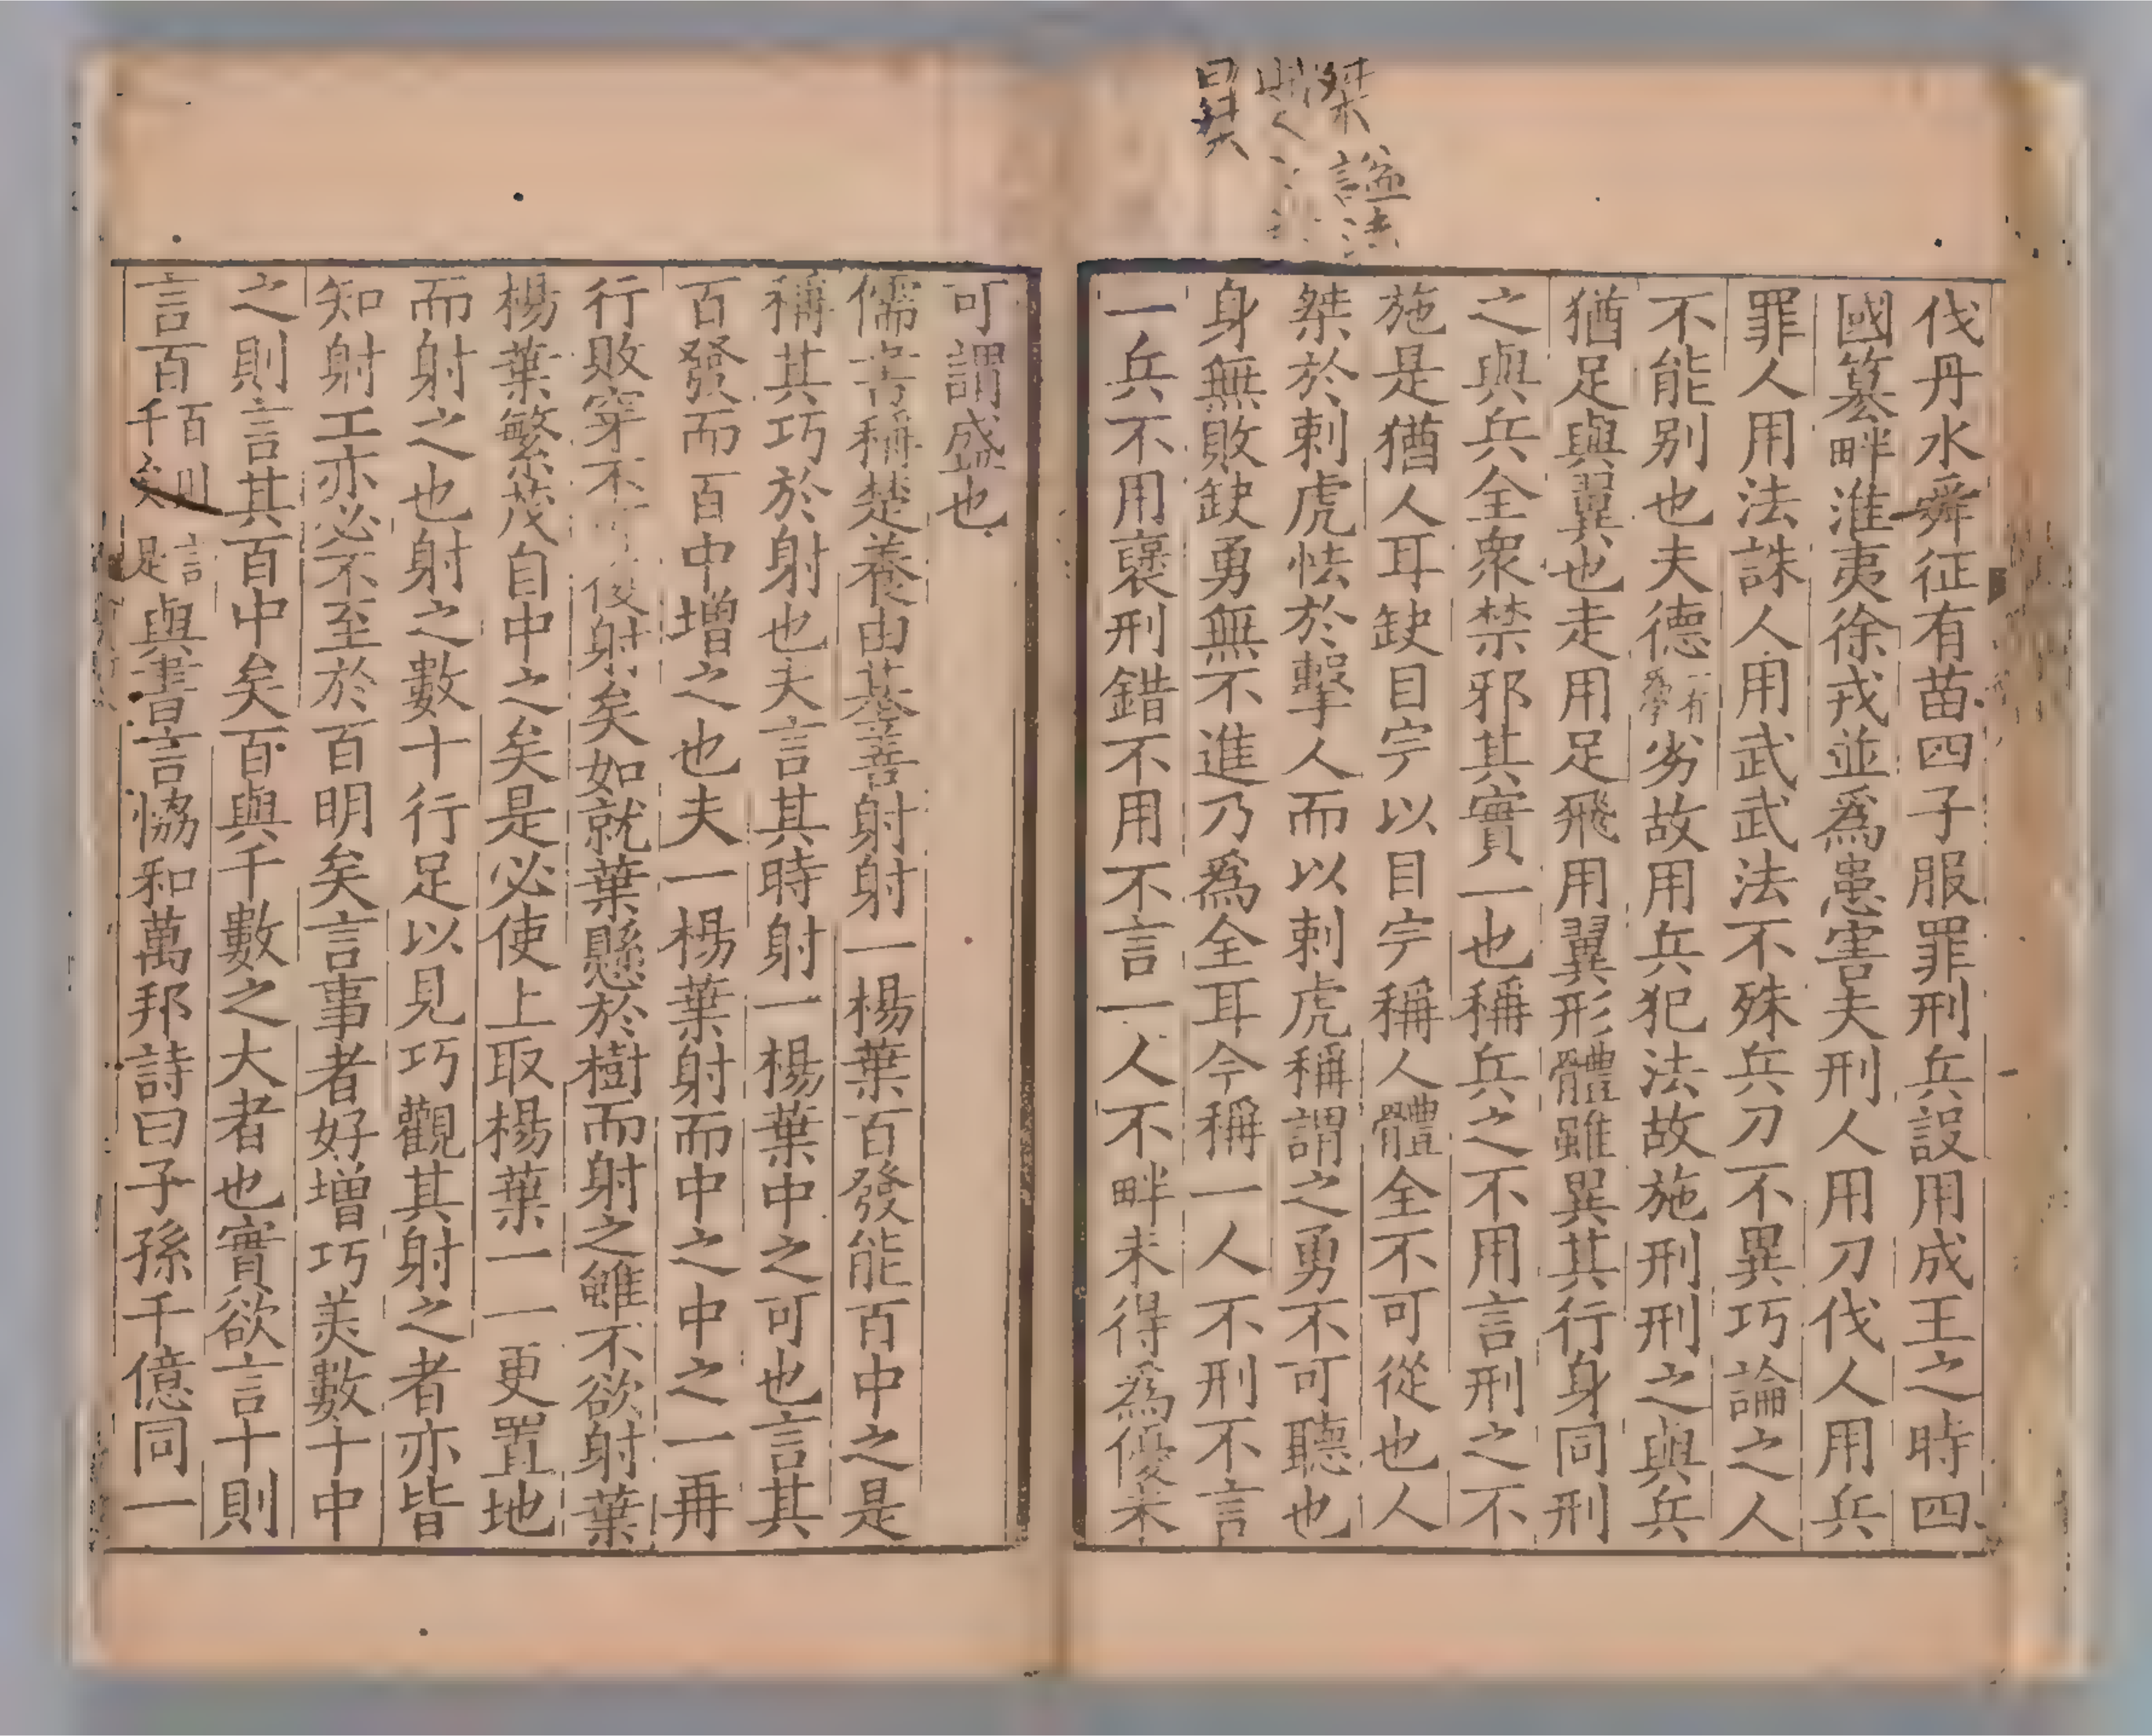 桀 謚法
昊
伐丹水舜征有苗四子服罪刑兵設用成王之時四
國篡畔淮夷徐戎並爲患害夫刑人用刀伐人用兵
罪人用法誅人用武武法不殊兵刀不異巧論之人
不能別也夫德一有學劣故用兵犯法故施刑刑之與兵
猶足與翼也走用足飛用翼形體雖異其行身同刑
之與兵全衆禁邪其實一也稱兵之不用言刑之不
施是猶人耳缺目完以目完稱人體全不可從也人
桀於刺虎怯於擊人而以刺虎稱謂之勇不可聽也
身無敗缺勇無不進乃爲全耳今稱一人不刑不言
一兵不用褒刑錯不用不言一人不畔未得爲優未
可謂盛也
儒書稱楚養由基善射射一楊葉百發能百中之是
稱其巧於射也夫言其時射一楊葉中之可也言其
百發而百中增之也夫一楊葉射而中之中之一再
行敗穿不復射矣如就葉懸於樹而射之雖不欲射葉
楊葉繁茂自中之矣是必使上取楊葉一一更置地
而射之也射之數十行足以見巧觀其射之者亦皆
知射工亦必不至於百明矣言事者好增巧美數十中
之則言其百中矣百與千數之大者也實欲言十則
言百百則千矣言是與書言恊和萬邦詩曰子孫千億同一